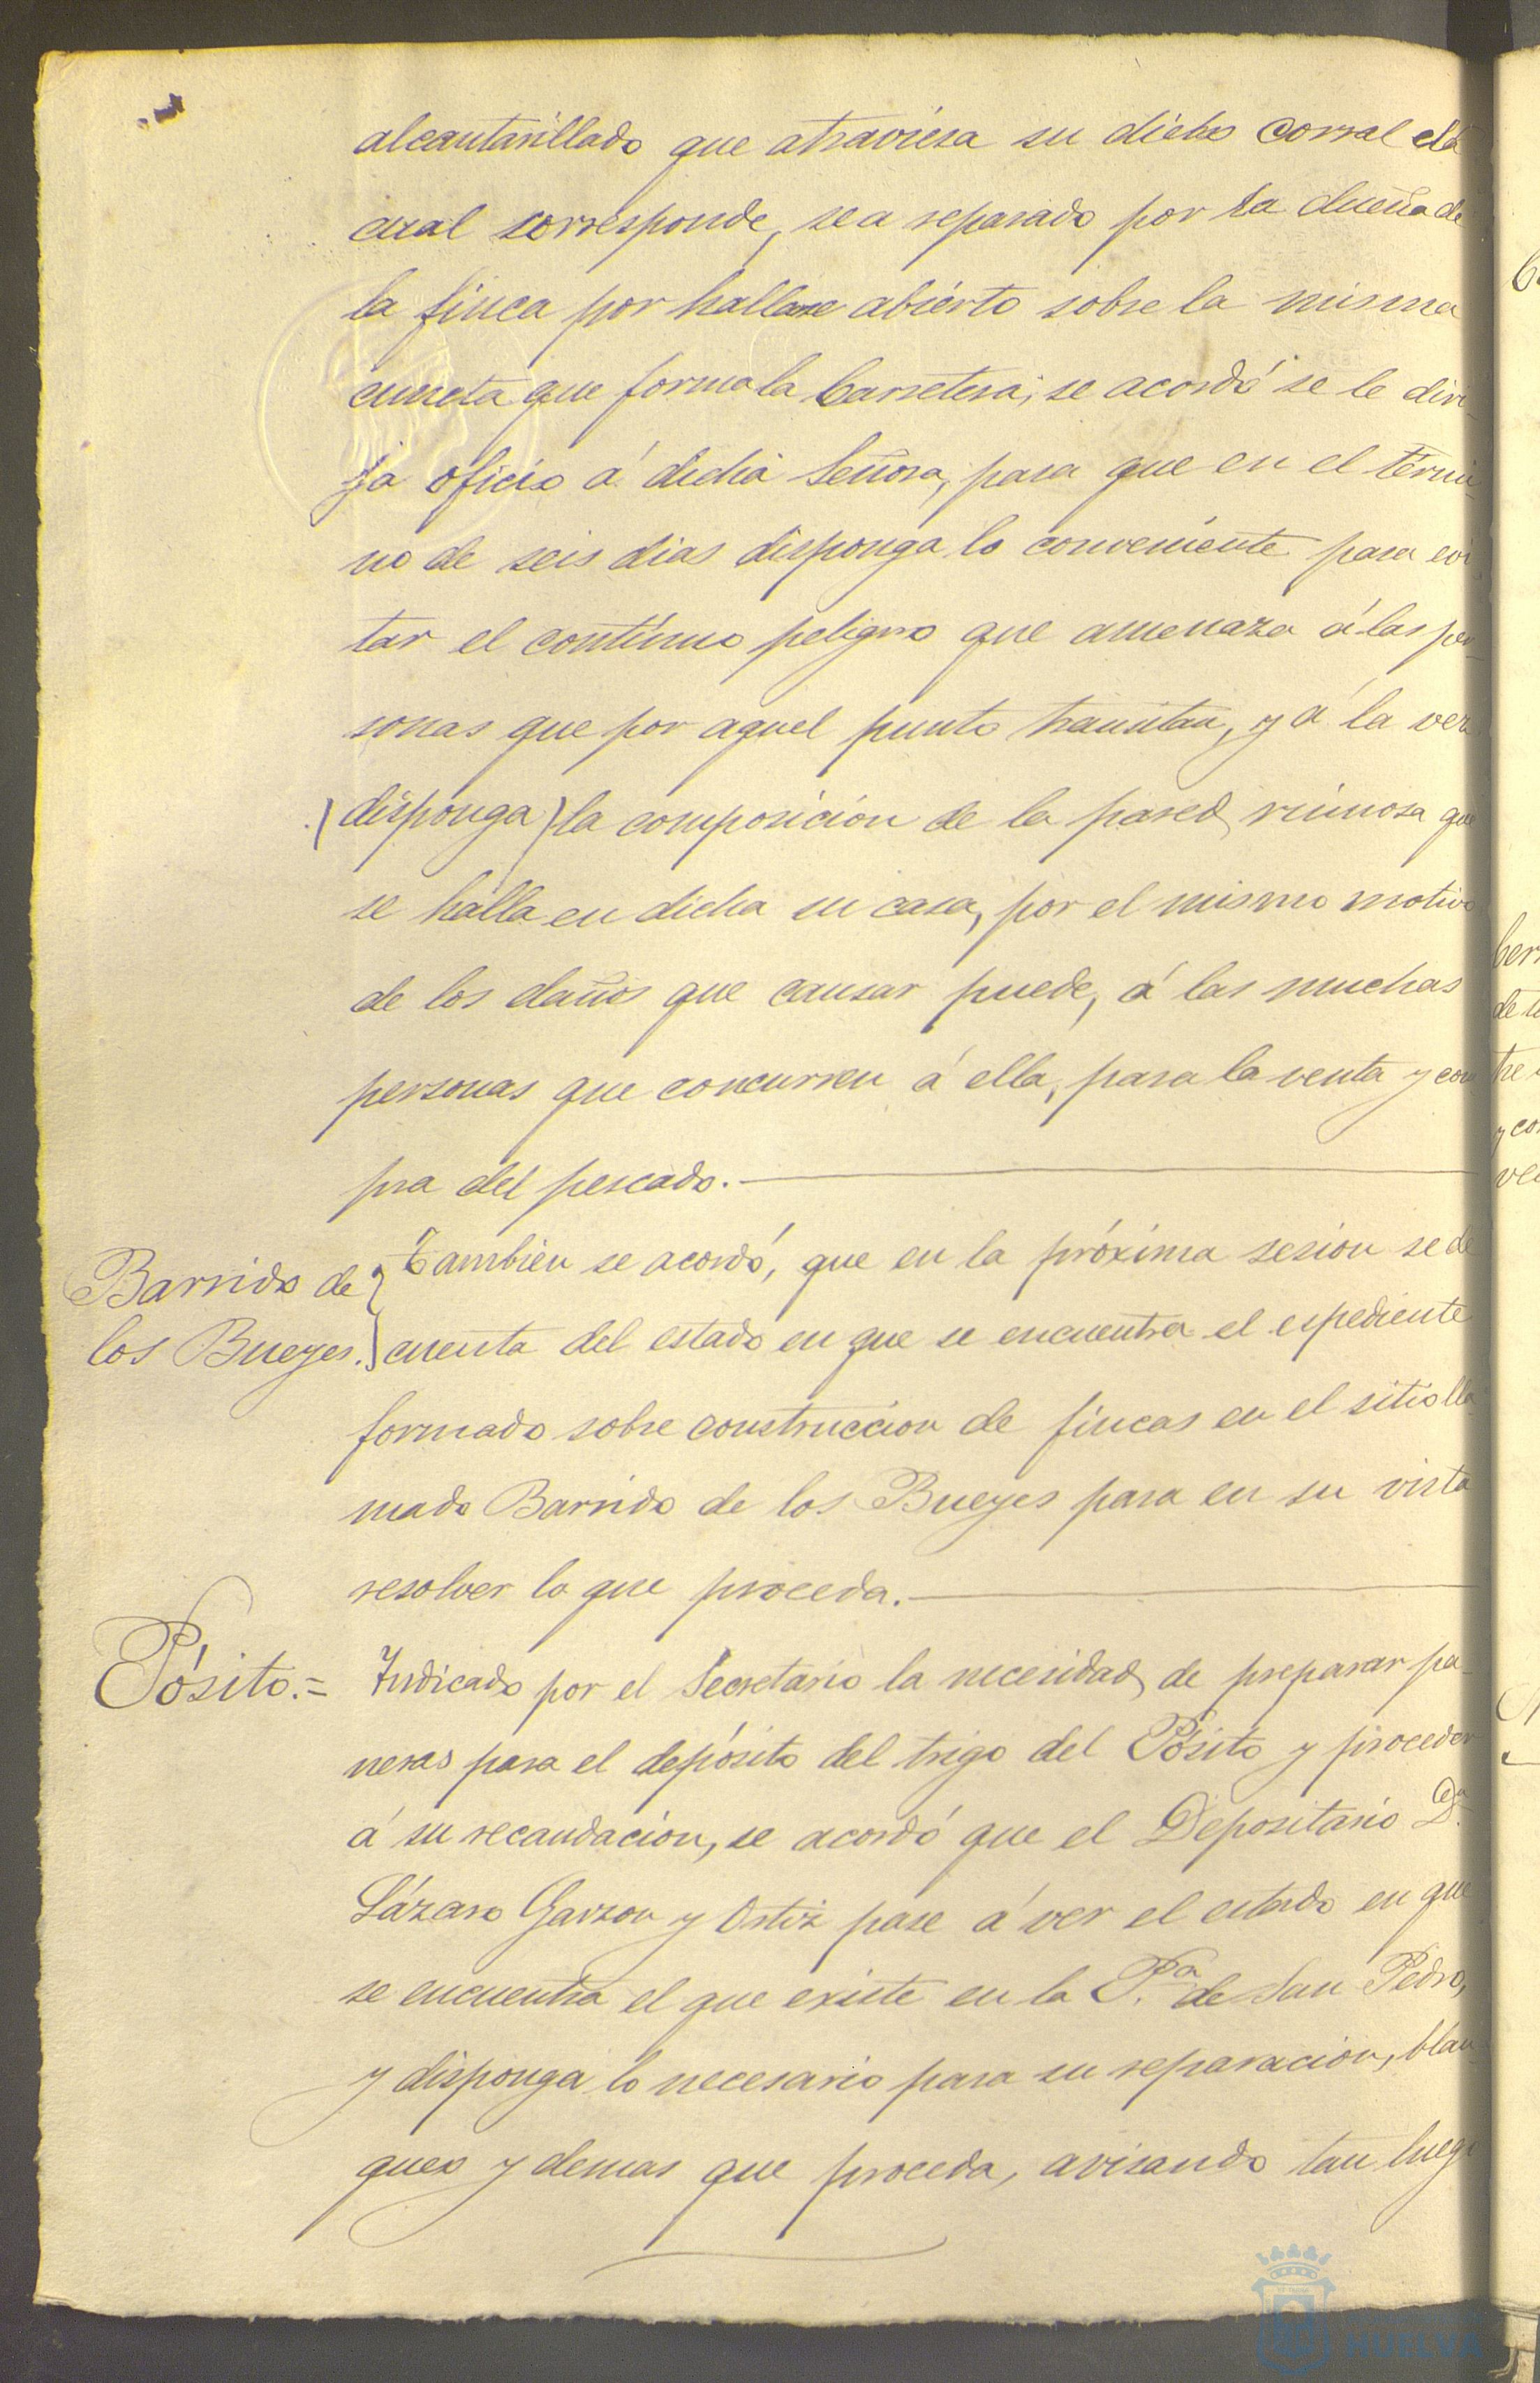 alcantarillado que atraviesa su dicho corral el
cual corresponde, sea reparado por la dueña de
la finca por hallarse abierto sobre la misma
cuneta que forma la Carretera; se acordó se le diri-
ja oficio á dicha Señora, para que en el térmi-
no de seis dias disponga lo conveniente para evi-
tar el contínuo peligro que amenaza á las per-
sonas que por aquel punto transitan, y á la vez
(disponga) la composicion de la pared ruinosa que
se halla en dicha su casa, por el mismo motivo
de los daños que causar puede, á las muchas
personas que concurren á ella, para la venta y com
pra del pescado.
Barrido de
los Bueyes.
Tambien se acordó, que en la próxima sesion se dé
cuenta del estado en que se encuentra el espediente
formado sobre construccion de fincas en el sitio lla
mado Barrido de los Bueyes para en su vista
resolver lo que proceda.
Pósito.=
Indicado por el Secretario la necesidad de preparar pa-
neras para el depósito del trigo del Pósito y proceder
á su recaudacion, se acordó que el Depositario Dn.
Lázaro Garzon y Ortiz pase á ver el estado en que
se encuentra el que existe en la P.a de San Pedro,
y disponga lo necesario para su reparacion, blan-
queo y demas que proceda, avisando tan luego
HUELVA